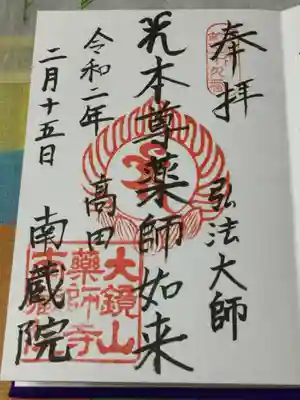 奉拝
弘法大師
本尊薬師如来
高田
南蔵院
令和二年
二月十五日
大鏡山
薬師寺